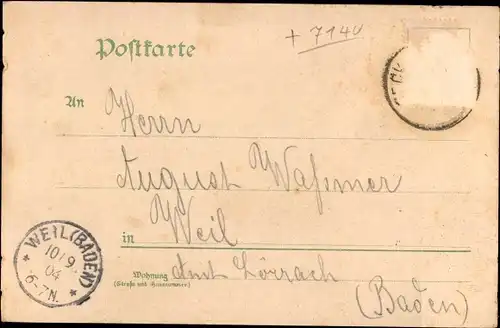 + 7140
Postkarte
An Herrn
August Waßmer
in Weil
Wohnung Amt Lörrach
(Straße und Hausnummer)
(Baden)
* WEIL (BADEN) *
10/9.
04
6-7N.